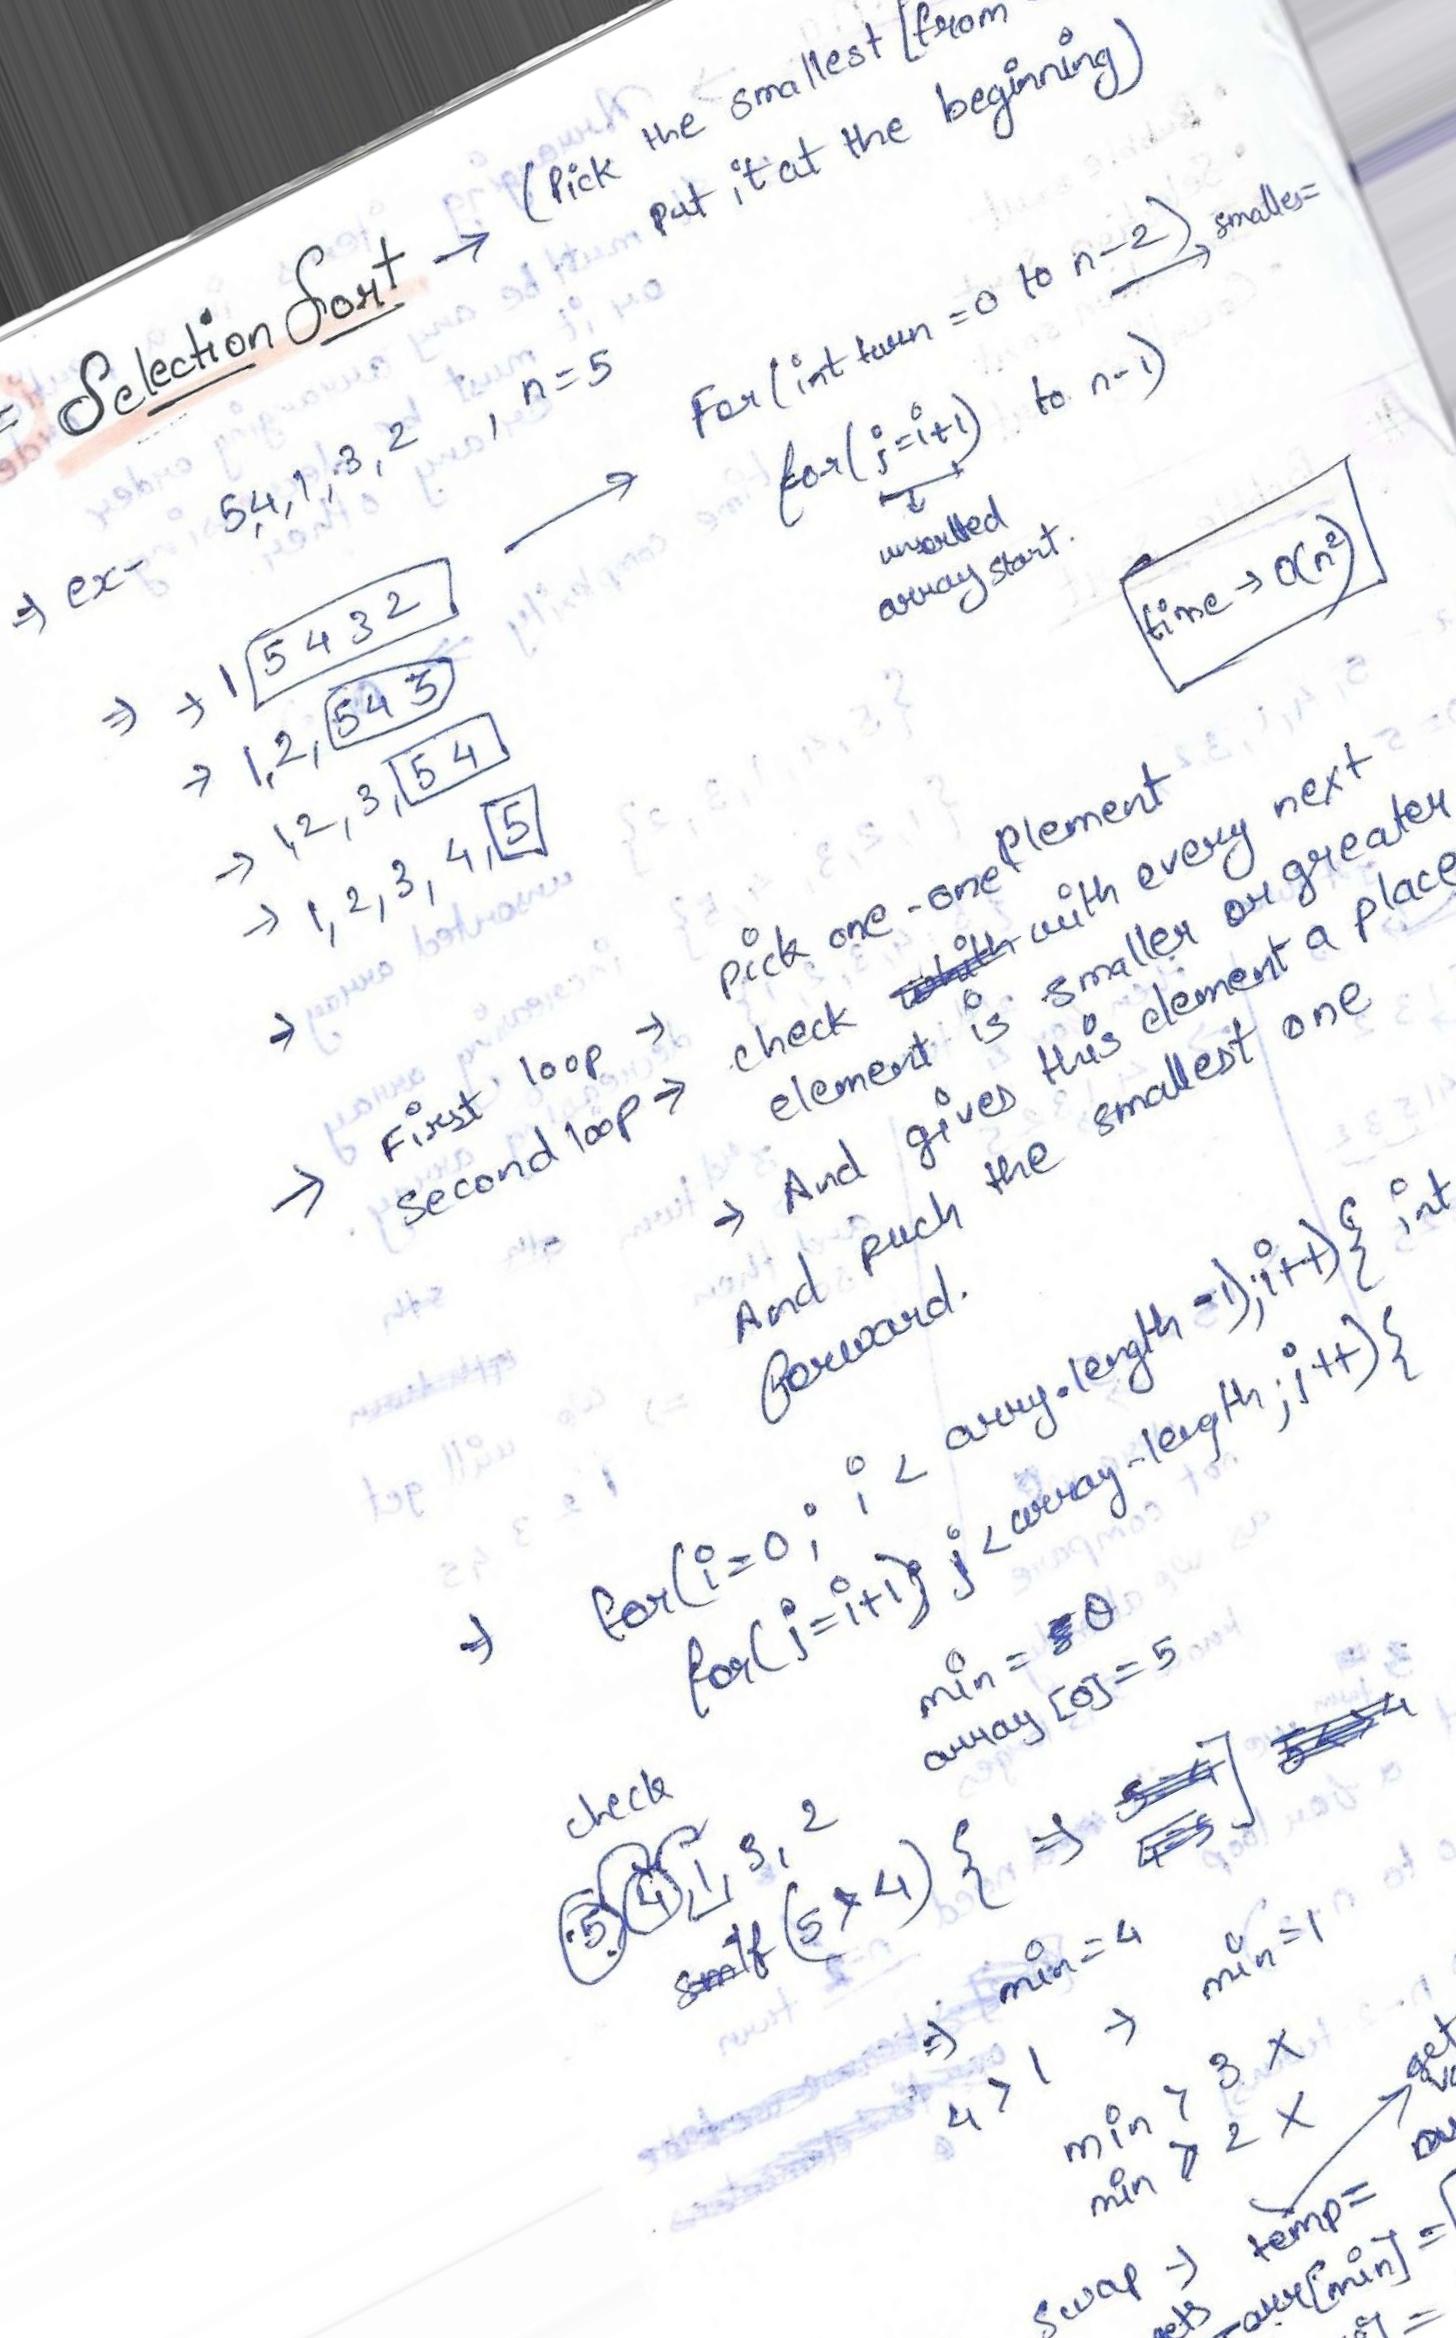 Selection Sort → (Pick the smallest [from
put it at the beginning)
⇒ ex- 5,4,1,3,2 , n=5
For(int turn =0 to n-2) → smalles=
for(j=i+1) to n-1)
↓
unsorted
array start.
time → O(n²)
⇒ → 1 5 4 3 2
→ 1,2, 5 4 3
→ 1,2,3, 5 4
→ 1,2,3,4, 5
→
→ First loop → pick one-one element
second loop → check with every next
element is smaller or greater
→ And gives this element a place
And puch the smallest one
forward.
⇒ for(i=0; i < arry.length -1);i++){ int
for(j=i+1); j < array.length; j++){
min = 0
array [0]=5
check
5,4,1,3,2
if (5>4) { ⇒
⇒ min=4
4>1 → min=1
min > 3 X
min > 2 X
swap → temp=
get
arr[min] =